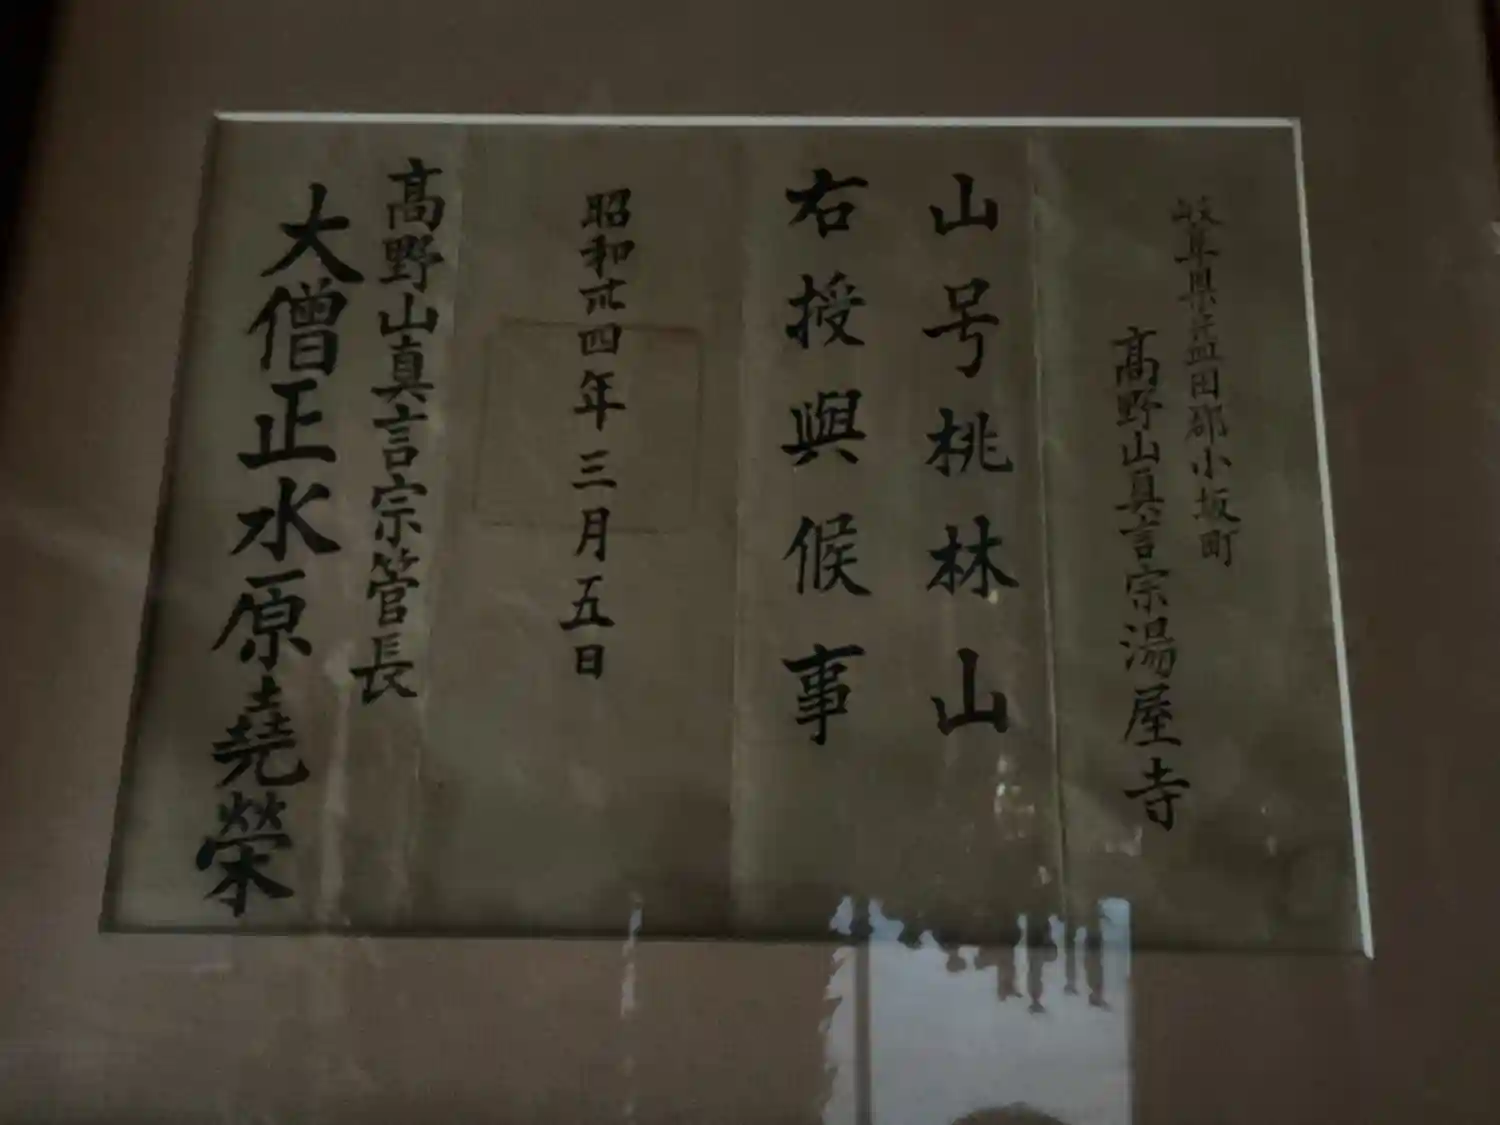 岐阜県益田郡小坂町
高野山真言宗湯屋寺
山号桃林山
右授與候事
昭和廾四年三月五日
高野山真言宗管長
大僧正水原堯榮